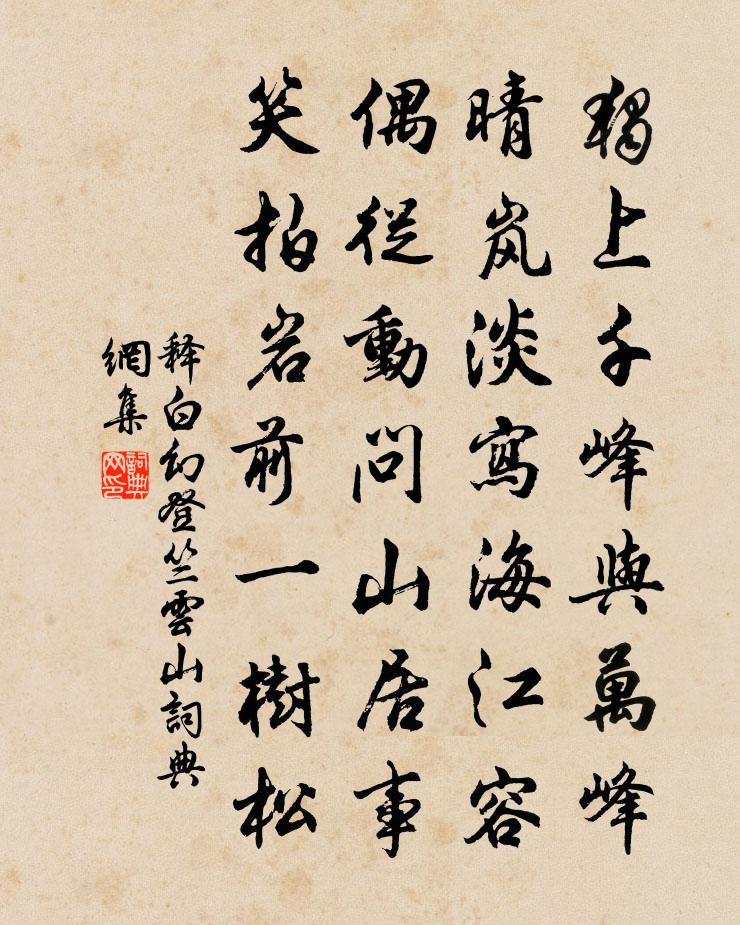 獨上千峰與萬峰
晴岚淡寫海江容
偶從動問山居事
笑拍岩前一樹松
释白幻登竺雲山詞典
網集
詞典
网印